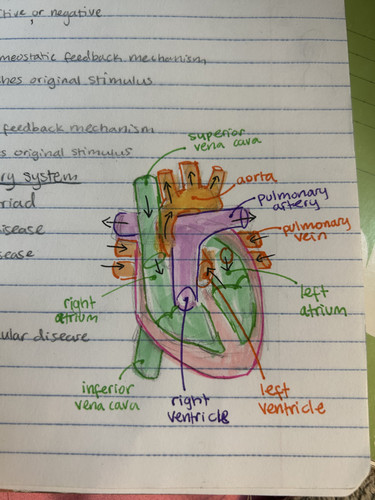 itive, or negative
meostatic feedback mechanism
hes original stimulus
feedback mechanism
s original stimulus
ry system
riad
isease
sease
ular disease
superior
vena cava
aorta
pulmonary
artery
pulmonary
vein
right
atrium
left
atrium
inferior
vena cava
right
ventricle
left
ventricle